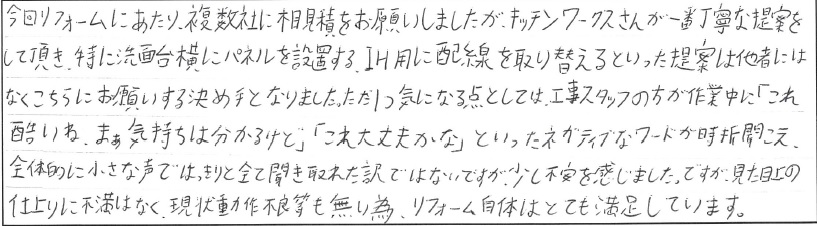 今回リフォームにあたり、複数社に相見積をお願いしましたが、キッチンワークスさんが一番丁寧な提案を
して頂き、特に洗面台横にパネルを設置する、IH用に配線を取り替えるといった提案は他者には
なくこちらにお願いする決め手となりました。ただ1つ気になる点としては、工事スタッフの方が作業中に「これ
酷いね、まぁ気持ちは分かるけど」「これ大丈夫かな」といったネガティブなワードが時折聞こえ、
全体的に小さな声ではっきりと全て聞き取れた訳ではないですが、少し不安を感じました。ですが、見た目上の
仕上りに不満はなく、現状動作不良等も無い為、リフォーム自体はとても満足しています。